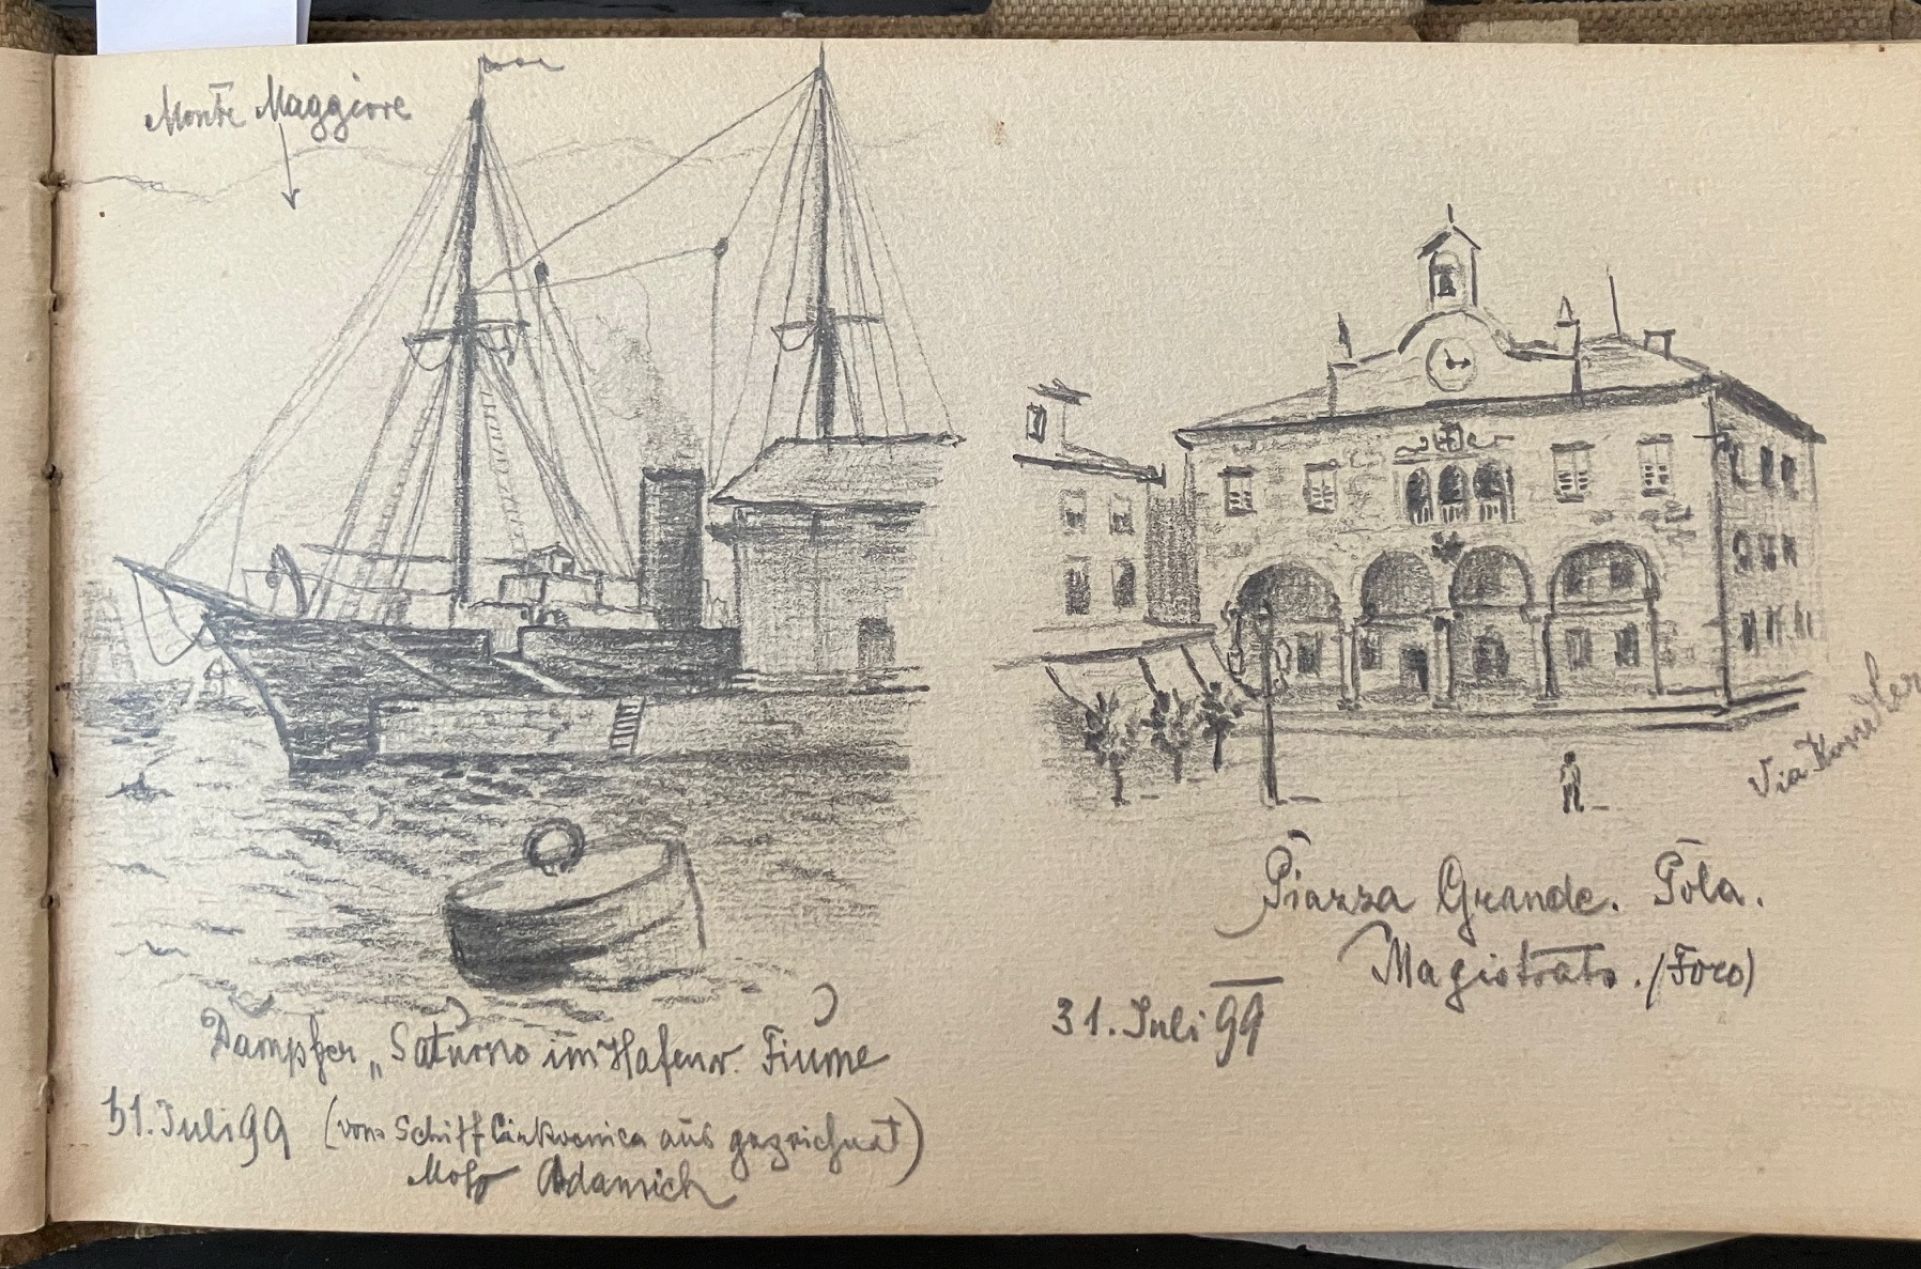 Monte Maggiore
Dampfer „Saturno im Hafen v. Fiume
31. Juli 99 (vom Schiff Cirkvenica aus gezeichnet)
Molo Adamich
Via Kandler
Piazza Grande. Pola.
Magistrato. (Foro)
31. Juli 99